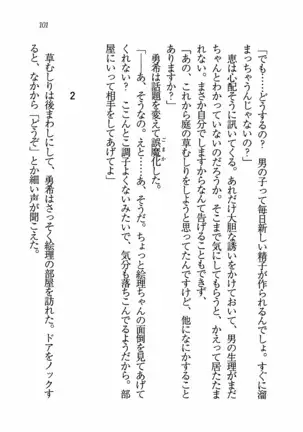 101
「でも……どうするの？　男の子って毎日新しい精子が作られるんでしょ。すぐに溜
まっちゃうんじゃないの？」
恵は心配そうに訊いてくる。あれだけ大胆な誘いをかけておいて、男の生理がまだ
ちゃんとわかっていないのだろうか。そこまで気にしてもらうと、かえって居たたま
れない。まさか自分でしますからなんて告げることもできず、
「あの、これから庭の草むしりをしようと思ってたんですけど、他になにかすること
ありますか？」
勇希は話題を変えて誤魔化した。
ごまか
「――あ、そうなの。えと……あ、そうだ。ちょっと絵理ちゃんの面倒を見てあげて
くれない？　ここんとこ調子よくないみたいで、気分も落ちこんでるようだから。部
屋にいって相手をしてあげてよ」
2
草むしりは後まわしにして、勇希はさっそく絵理の部屋を訪れた。ドアをノックす
ると、なかから「どうぞ」とか細い声が聞こえた。